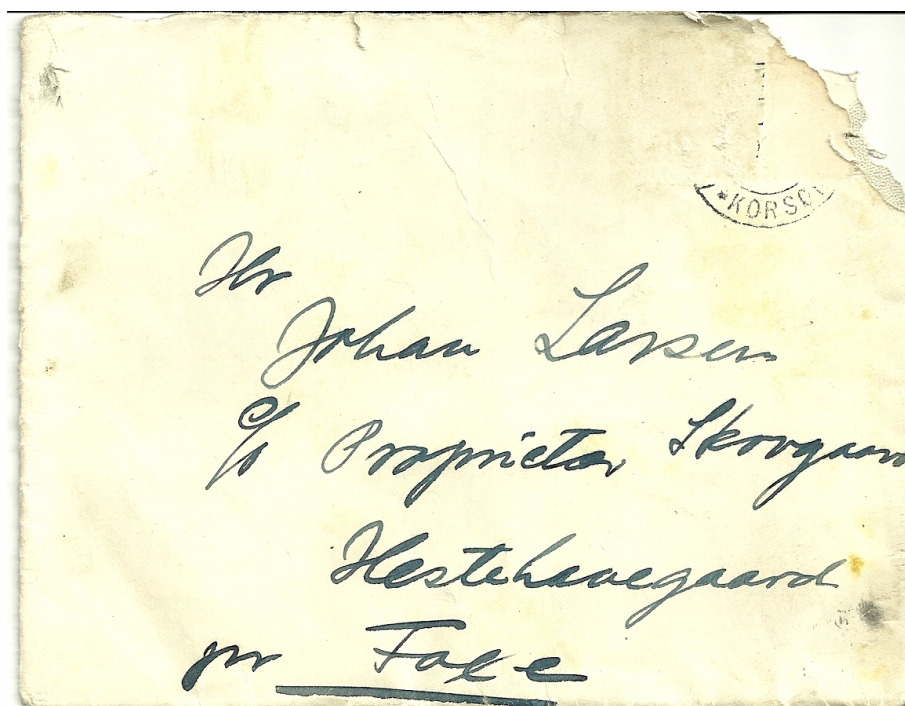 *KORSØ
Hr
Johan Larsen
c/o Proprietær Skovgaar
Hestehavegaard
pr Faxe